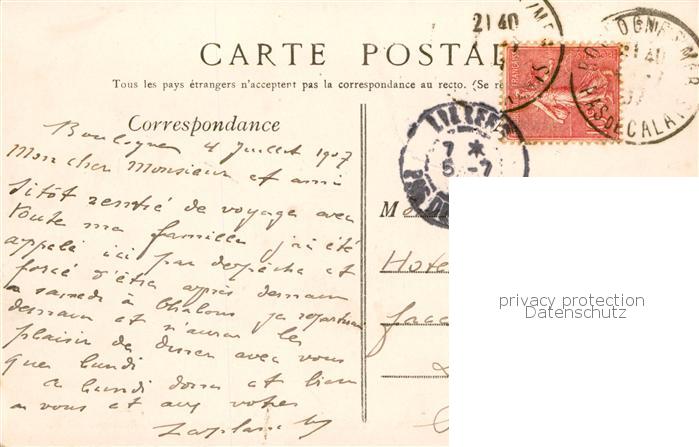 CARTE POSTAL
Tous les pays étrangers n'acceptent pas la correspondance au recto. (Se re
Correspondance
Boulogne 4 Juillet 1907
Mon cher Monsieur et ami
Sitôt rentré de voyage avec
toute ma famille j'ai été
appelé ici par depêche et
forcé d'être après demain
samedi à Chalons je repartirai
demain et n'aurai le
plaisir de diner avec vous
que lundi
A lundi donc et bien
a vous et aux votres
Laplane
M
Hote
face
2140
BOULOGNE-S-MER
2140
07
PAS DE CALAIS
7 *
5 -7
FRANÇAISE
privacy protection
Datenschutz